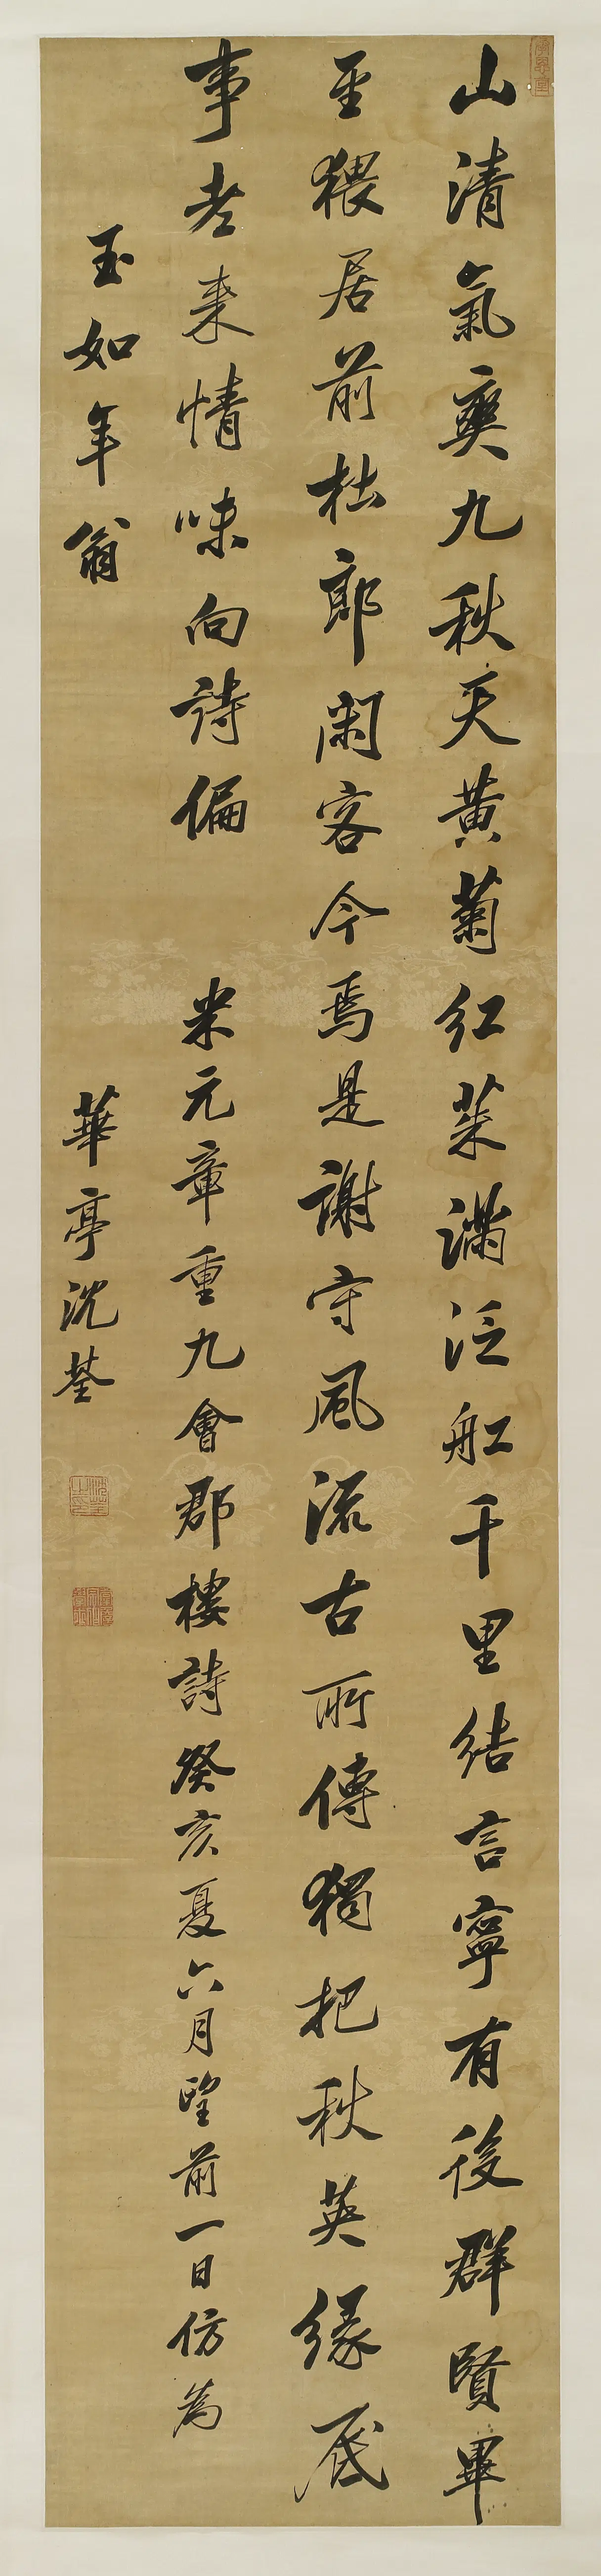 山清氣爽九秋天黃菊紅茱滿泛舡千里結言寧有後群賢畢
至猥居前杜郎閑客今焉是謝守風流古所傳獨把秋英緣底
事老来情味向詩偏　米元章重九會郡樓詩癸亥夏六月望前一日仿為
玉如年翁　華亭沈荃